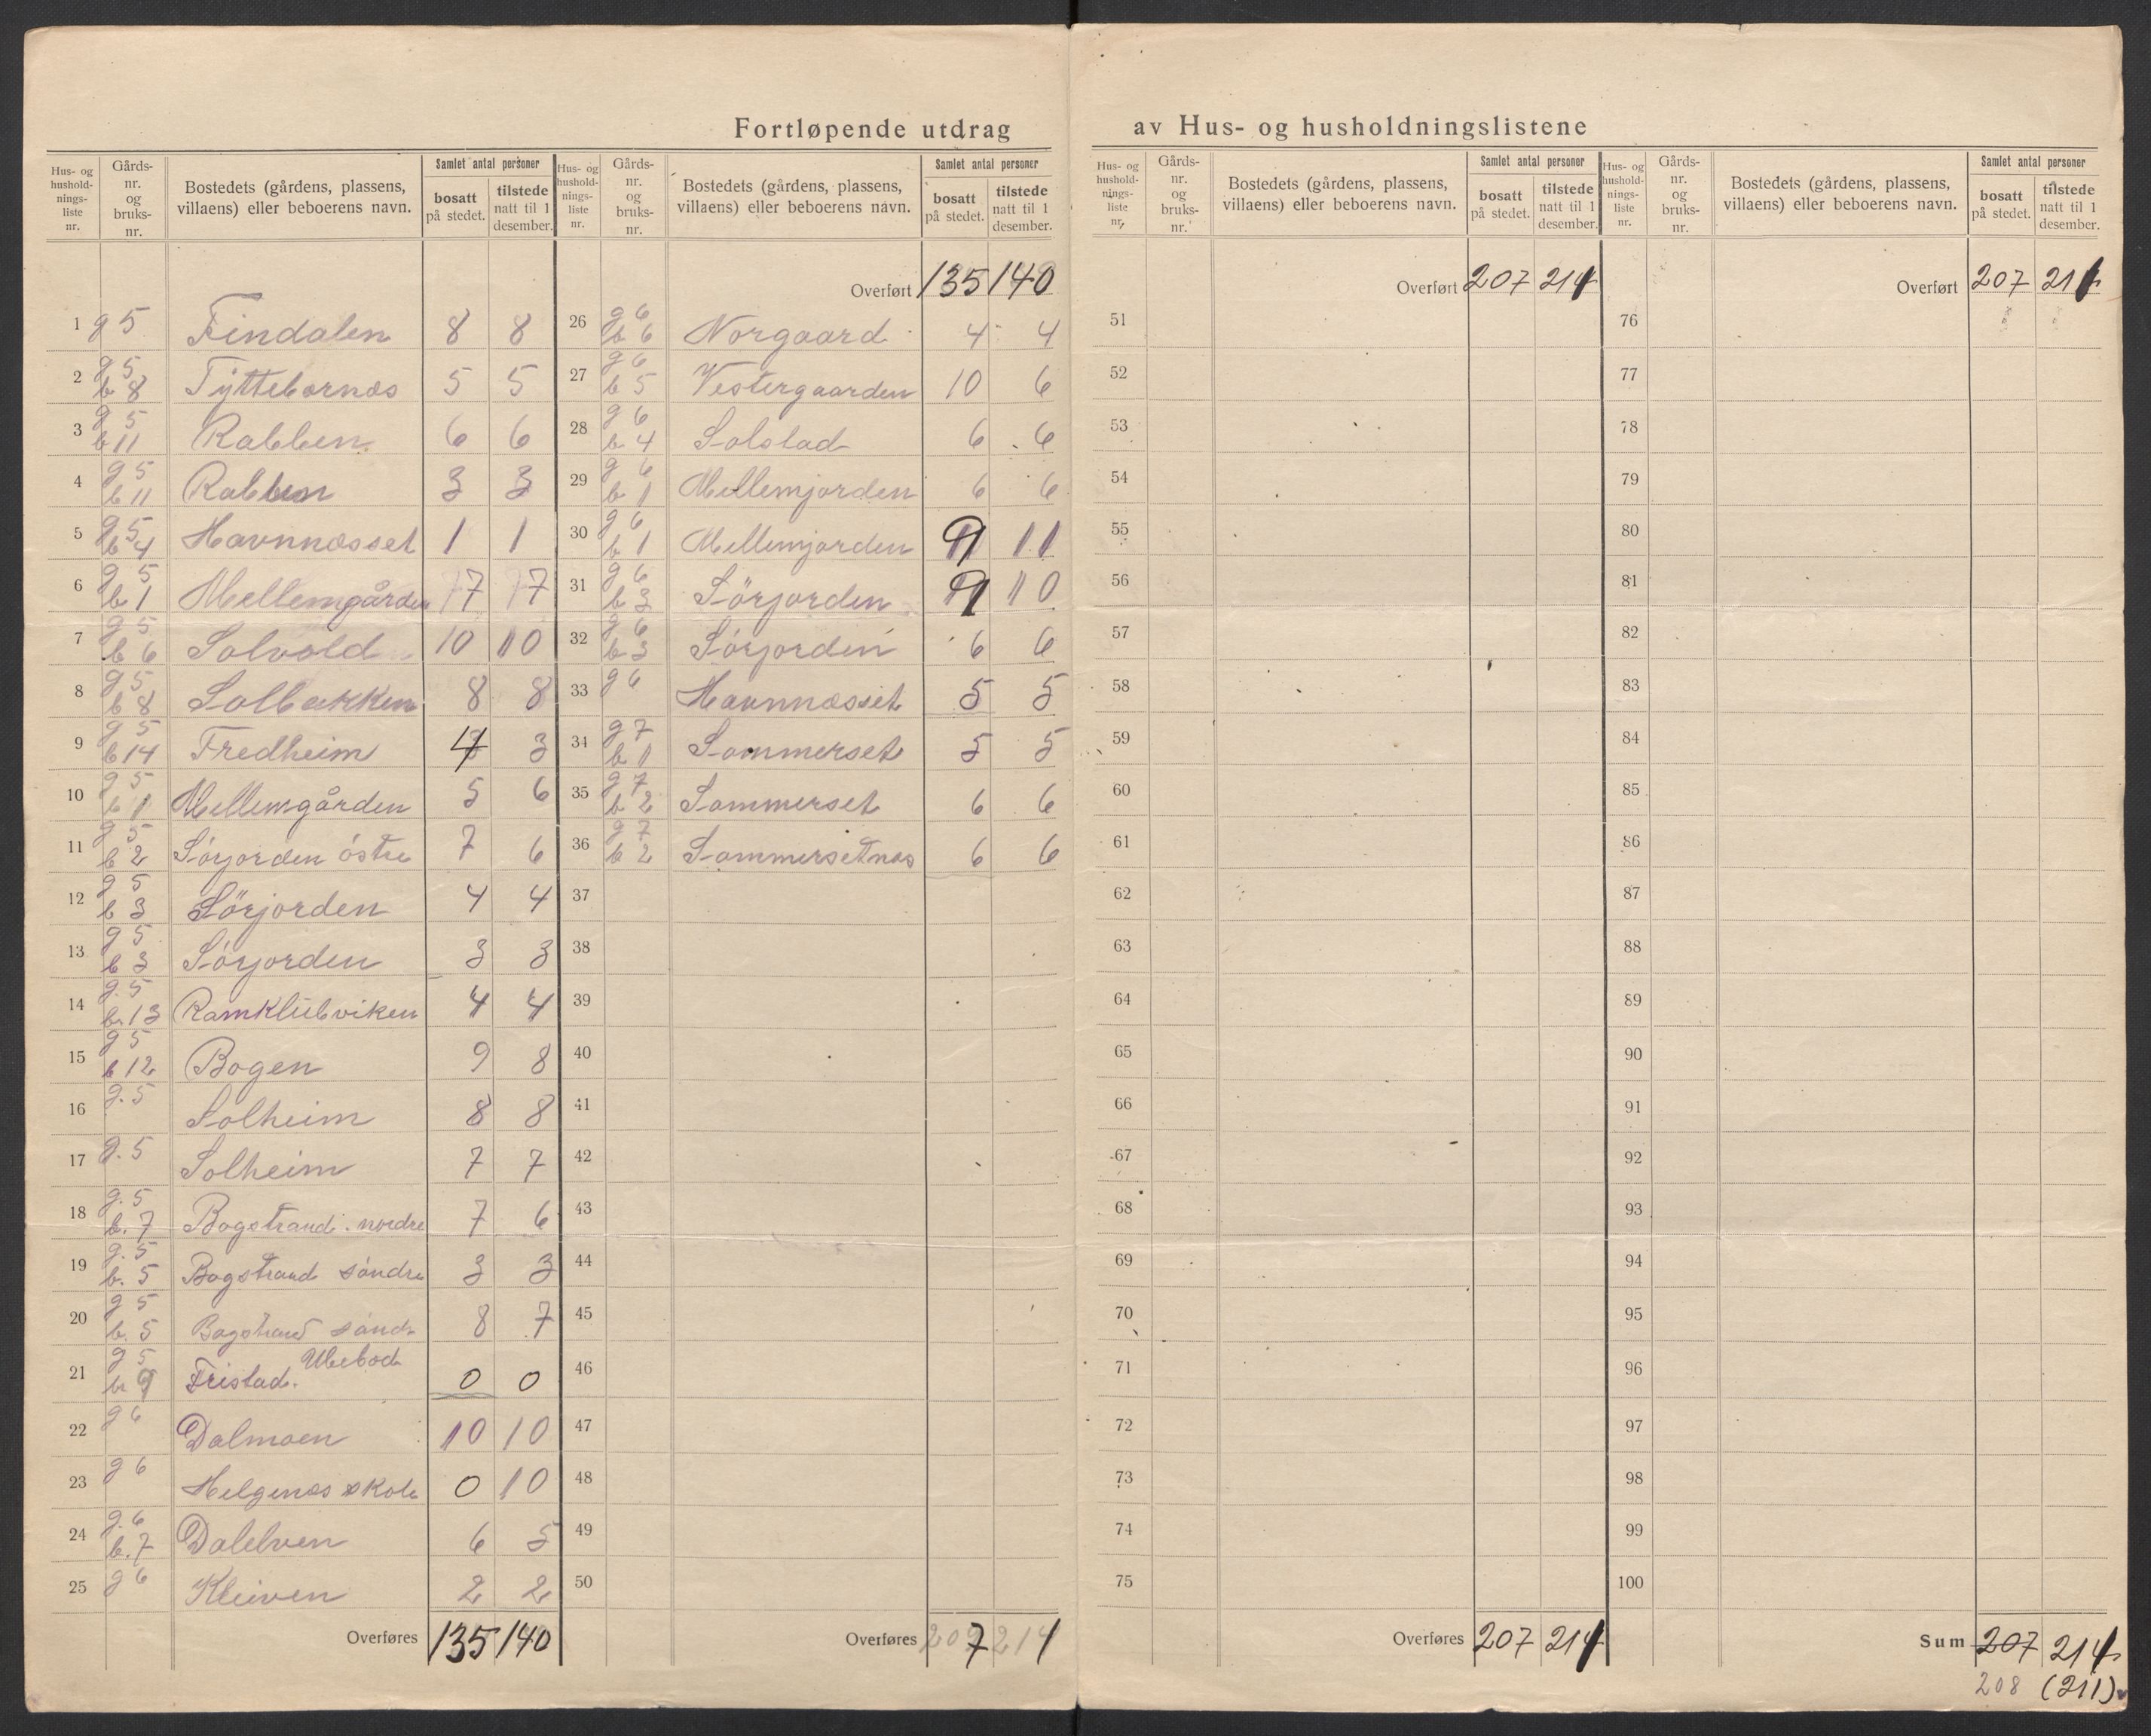 Fortløpende utdrag av Hus- og husholdningslistene
Hus- og husholdnings-liste nr. | Gårds-nr. og bruks-nr. | Bostedets (gårdens, plassens, villaens) eller beboerens navn. | Samlet antal personer bosatt på stedet. | tilstede natt til 1 desember.
1 g 5 Findalen 8 8
2 g 5 b 8 Tyttebærnæs 5 5
3 g 5 b 11 Rabben 6 6
4 g 5 b 11 Rabben 3 3
5 g 5 b 4 Havnnæsset 1 1
6 g 5 b 1 Mellemgården 17 17
7 g 5 b 6 Solvold 10 10
8 g 5 b 8 Solbakken 8 8
9 g 5 b 14 Fredheim 4 3
10 g 5 b 1 Mellemgården 5 6
11 g 5 b 2 Sörjorden östre 7 6
12 g 5 b 3 Sörjorden 4 4
13 g 5 b 3 Sörjorden 3 3
14 g. 5 b. 13 Ramklubviken 4 4
15 g 5 b 12 Bogen 9 8
16 g. 5 Solheim 8 8
17 g. 5 Solheim 7 7
18 g. 5 b. 7 Bogstrand nordre 7 6
19 g. 5 b. 5 Bogstrand söndre 3 3
20 g 5 b. 5 Bogstrand sönd. 8 7
21 g 5 b. 9 Fristad. Ubebod 0 0
22 g 6 Dalmoen 10 10
23 g 6 Helgenæs skole 0 10
24 g. 6 b. 7 Dalelven 6 5
25 g 6 Kleiven 2 2
Overføres 135 140
Hus- og husholdnings-liste nr. | Gårds-nr. og bruks-nr. | Bostedets (gårdens, plassens, villaens) eller beboerens navn. | Samlet antal personer bosatt på stedet. | tilstede natt til 1 desember.
Overført 135 140
26 g 6 b 6 Norgaard 4 4
27 g 6 b 5 Vestergaarden 10 6
28 g 6 b 4 Solstad 6 6
29 g 6 b 1 Mellemjorden 6 6
30 g 6 b 1 Mellemjorden 9 11
31 g 6 b 3 Sörjorden 9 10
32 g 6 b 3 Sörjorden 6 6
33 g 6 Havnnæsset 5 5
34 g 7 b 1 Sommerset 5 5
35 g 7 b 2 Sommerset 6 6
36 g 7 b 2 Sommersetnæs 6 6
37
38
39
40
41
42
43
44
45
46
47
48
49
50
Overføres 207 214
Hus- og husholdnings-liste nr. | Gårds-nr. og bruks-nr. | Bostedets (gårdens, plassens, villaens) eller beboerens navn. | Samlet antal personer bosatt på stedet. | tilstede natt til 1 desember.
Overført 207 214
51
52
53
54
55
56
57
58
59
60
61
62
63
64
65
66
67
68
69
70
71
72
73
74
75
Overføres 207 214
Hus- og husholdnings-liste nr. | Gårds-nr. og bruks-nr. | Bostedets (gårdens, plassens, villaens) eller beboerens navn. | Samlet antal personer bosatt på stedet. | tilstede natt til 1 desember.
Overført 207 214
76
77
78
79
80
81
82
83
84
85
86
87
88
89
90
91
92
93
94
95
96
97
98
99
100
Sum 207 214
208 (211)